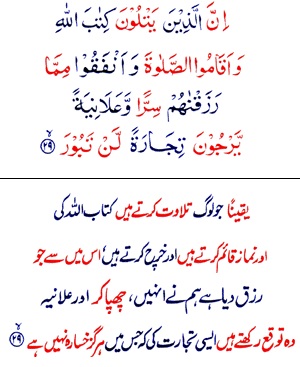 اِنَّ الَّذِیْنَ یَتْلُوْنَ كِتٰبَ اللّٰهِ
وَ اَقَامُوا الصَّلٰوةَ وَ اَنْفَقُوْا مِمَّا
رَزَقْنٰهُمْ سِرًّا وَّ عَلَانِیَةً
یَّرْجُوْنَ تِجَارَةً لَّنْ تَبُوْرَ ۲۹
یقیناً جو لوگ تلاوت کرتے ہیں کتاب اللہ کی
اور نماز قائم کرتے ہیں اور خرچ کرتے ہیں‘ اس میں سے جو
رزق دیا ہے ہم نے انہیں، چھپا کر اور علانیہ
وہ توقع رکھتے ہیں ایسی تجارت کی کہ جس میں ہرگز خسارہ نہیں ہے ۲۹